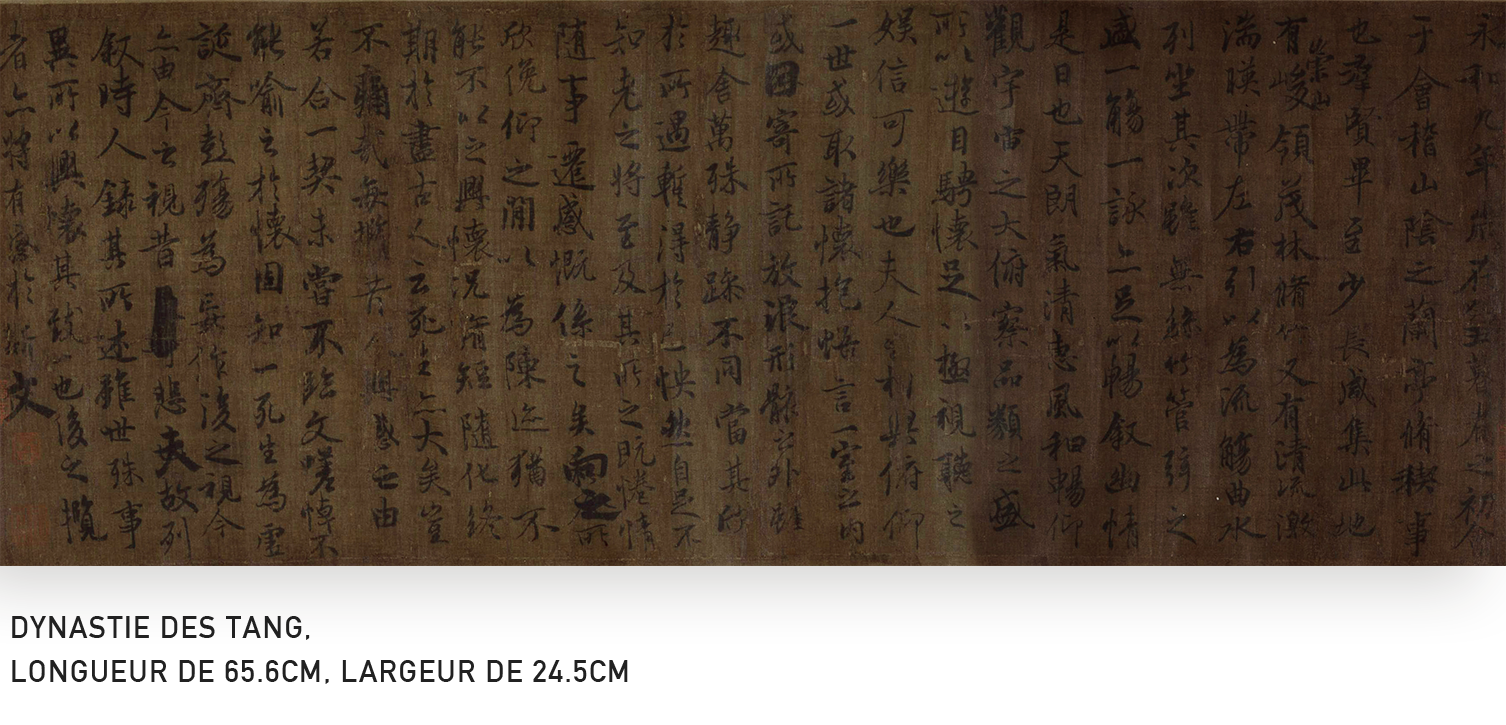 永和九年歲在癸丑暮春之初會
于會稽山陰之蘭亭脩稧事
也羣賢畢至少長咸集此地
有崇山峻領茂林脩竹又有清流激
湍暎帶左右引以為流觴曲水
列坐其次雖無絲竹管弦之
盛一觴一詠亦足以暢叙幽情
是日也天朗氣清惠風和暢仰
觀宇宙之大俯察品類之盛
所以遊目騁懷足以極視聽之
娛信可樂也夫人之相與俯仰
一世或取諸懷抱悟言一室之內
或因寄所託放浪形骸之外雖
趣舍萬殊静躁不同當其欣
於所遇暫得於己怏然自足不
知老之將至及其所之既惓情
隨事遷感慨係之矣向之所
欣俛仰之閒以為陳迹猶不
能不以之興懷況脩短隨化終
期於盡古人云死生亦大矣豈
不痛哉每攬昔人興感之由
若合一契未嘗不臨文嗟悼不
能喻之於懷固知一死生為虛
誕齊彭殤為妄作後之視今
亦由今之視昔可悲夫故列
叙時人錄其所述雖世殊事
異所以興懷其致一也後之攬
者亦將有感於斯文
DYNASTIE DES TANG,
LONGUEUR DE 65.6CM, LARGEUR DE 24.5CM